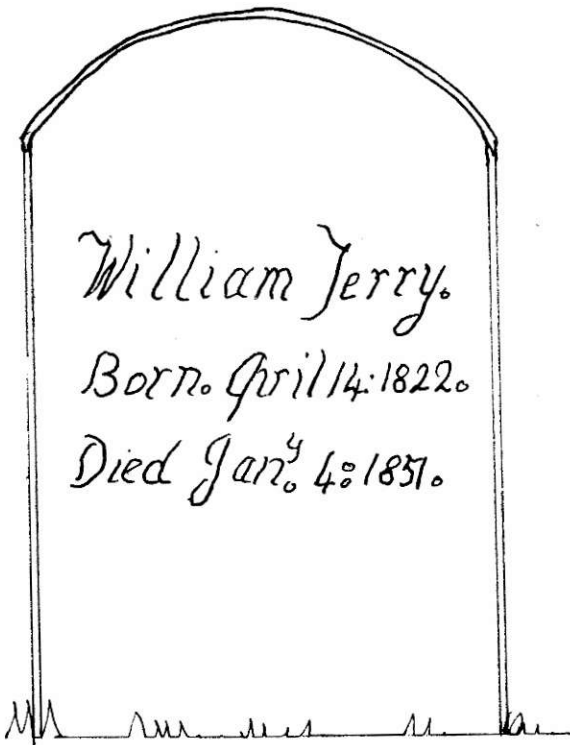 William Terry.
Born. April 14: 1822.
Died Jan.y 4: 1851.